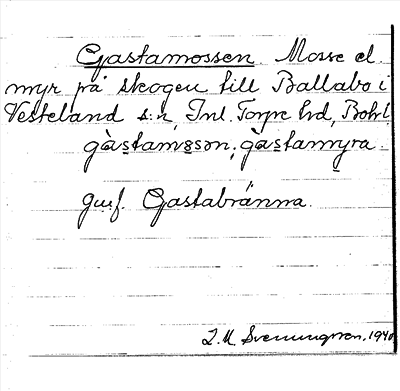 Gastamossen. Mosse el.
myr på skogen till Ballabo i
Vesteland s:n, Inl. Torpe hd, Bohl.
gàstamɜsən; gàstamyra.
jmf. Gastabränna.
J. M. Svenungsson, 1940